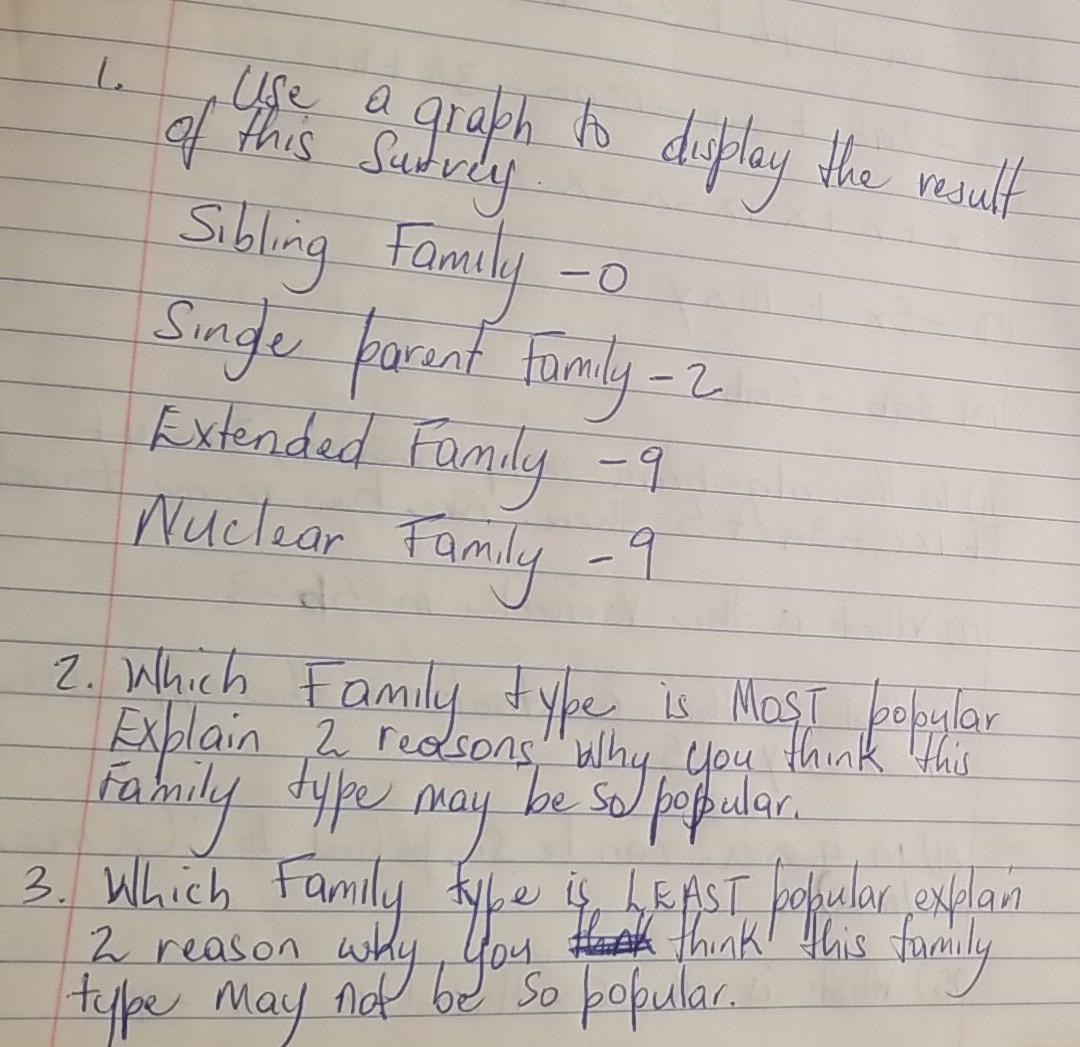 1. Use a graph to display the result
of this Survey.
Sibling Family - 0
Singe parent Family - 2
Extended Family - 9
Nuclear Family - 9
2. Which Family type is MOST popular
Explain 2 reasons why you think this
Family type may be so popular.
3. Which Family type is LEAST popular explain
2 reason why you think this family
type may not be so popular.